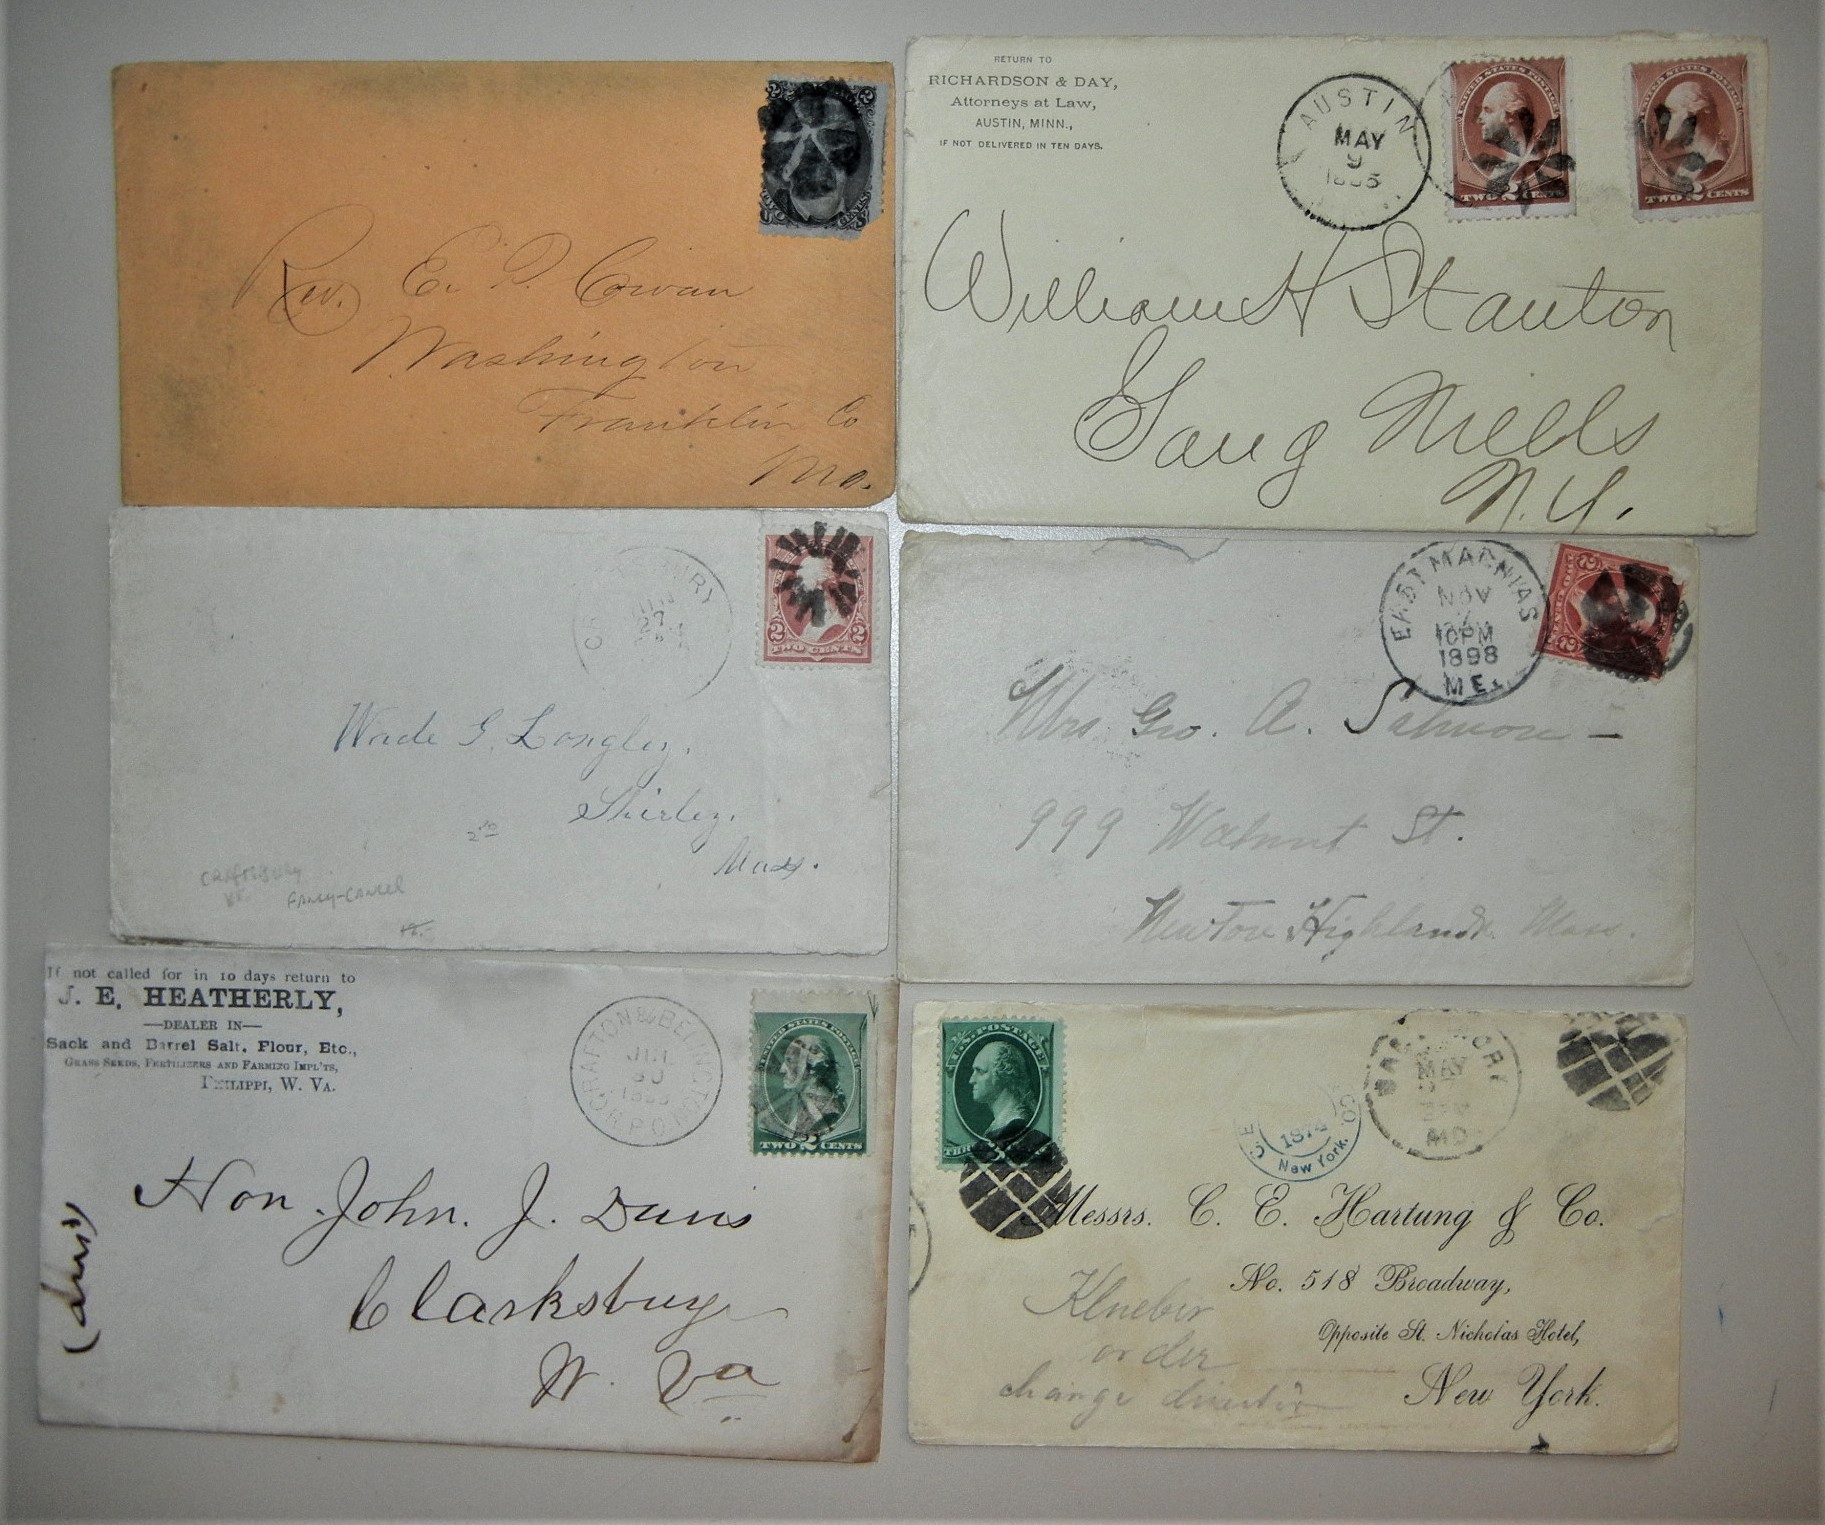 2
2
TWO
CENTS
Rev. E. P. Cowan
Washington
Franklin Co
Mo.
RETURN TO
RICHARDSON & DAY,
Attorneys at Law,
AUSTIN, MINN.,
IF NOT DELIVERED IN TEN DAYS.
AUSTIN
MAY
9
UNITED STATES POSTAGE
TWO 2 CENTS
UNITED STATES POSTAGE
TWO 2 CENTS
William H Stanton
Gang Mills
N.Y.
27
2 2
TWO CENTS
Wade G. Longley.
Shirley.
Mass.
Craftsbury
VT
Fancy-Cancel
EAST MACHIAS
NOV
10PM
1898
ME.
2
2
Mrs. Geo. A. Salmon -
999 Walnut St.
Newton Highlands. Mass.
If not called for in 10 days return to
J. E. HEATHERLY,
—DEALER IN—
Sack and Barrel Salt, Flour, Etc.,
GRASS SEEDS, FERTILIZERS AND FARMING IMPL'TS,
PHILIPPI, W. VA.
GRAFTON & BELINGTON
R.P.O.
UNITED STATES POSTAGE
TWO 2 CENTS
Hon. John. J. Davis
Clarksburg
W. Va
U.S. POSTAGE
C. E.
CO.
187
New York.
MAY
MD
Messrs. C. E. Hartung & Co.
No. 518 Broadway,
Opposite St. Nicholas Hotel,
New York.
order
change direction